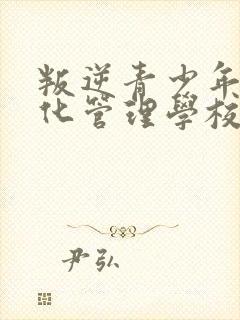 叛逆青少年
化管理學校
尹弘